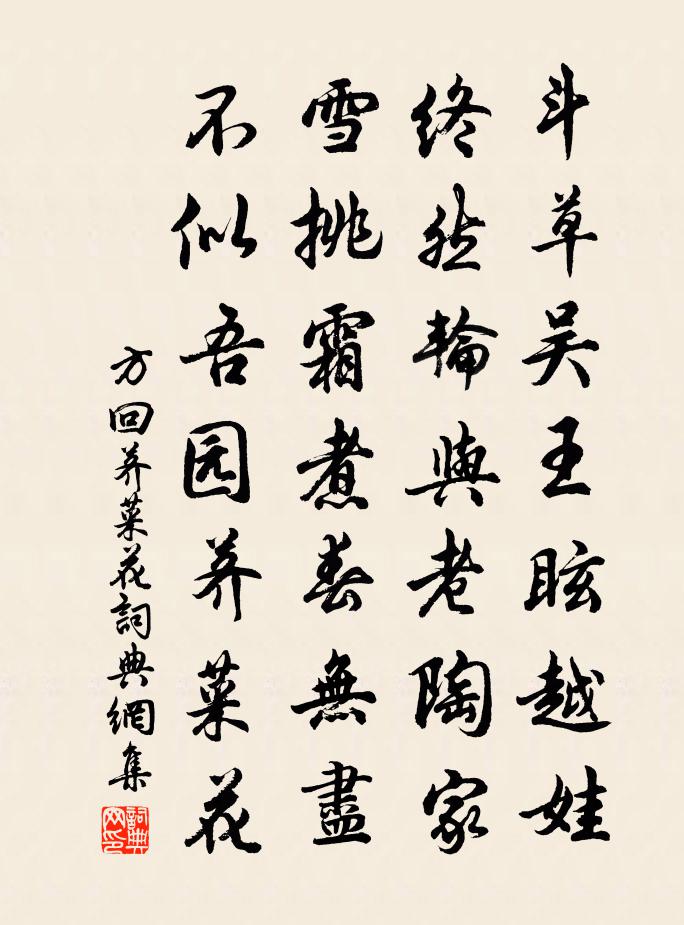 斗草吴王眩越娃
终然輪與老陶家
雪挑霜煮春無盡
不似吾园荠菜花
方回荠菜花詞典網集
詞典网印